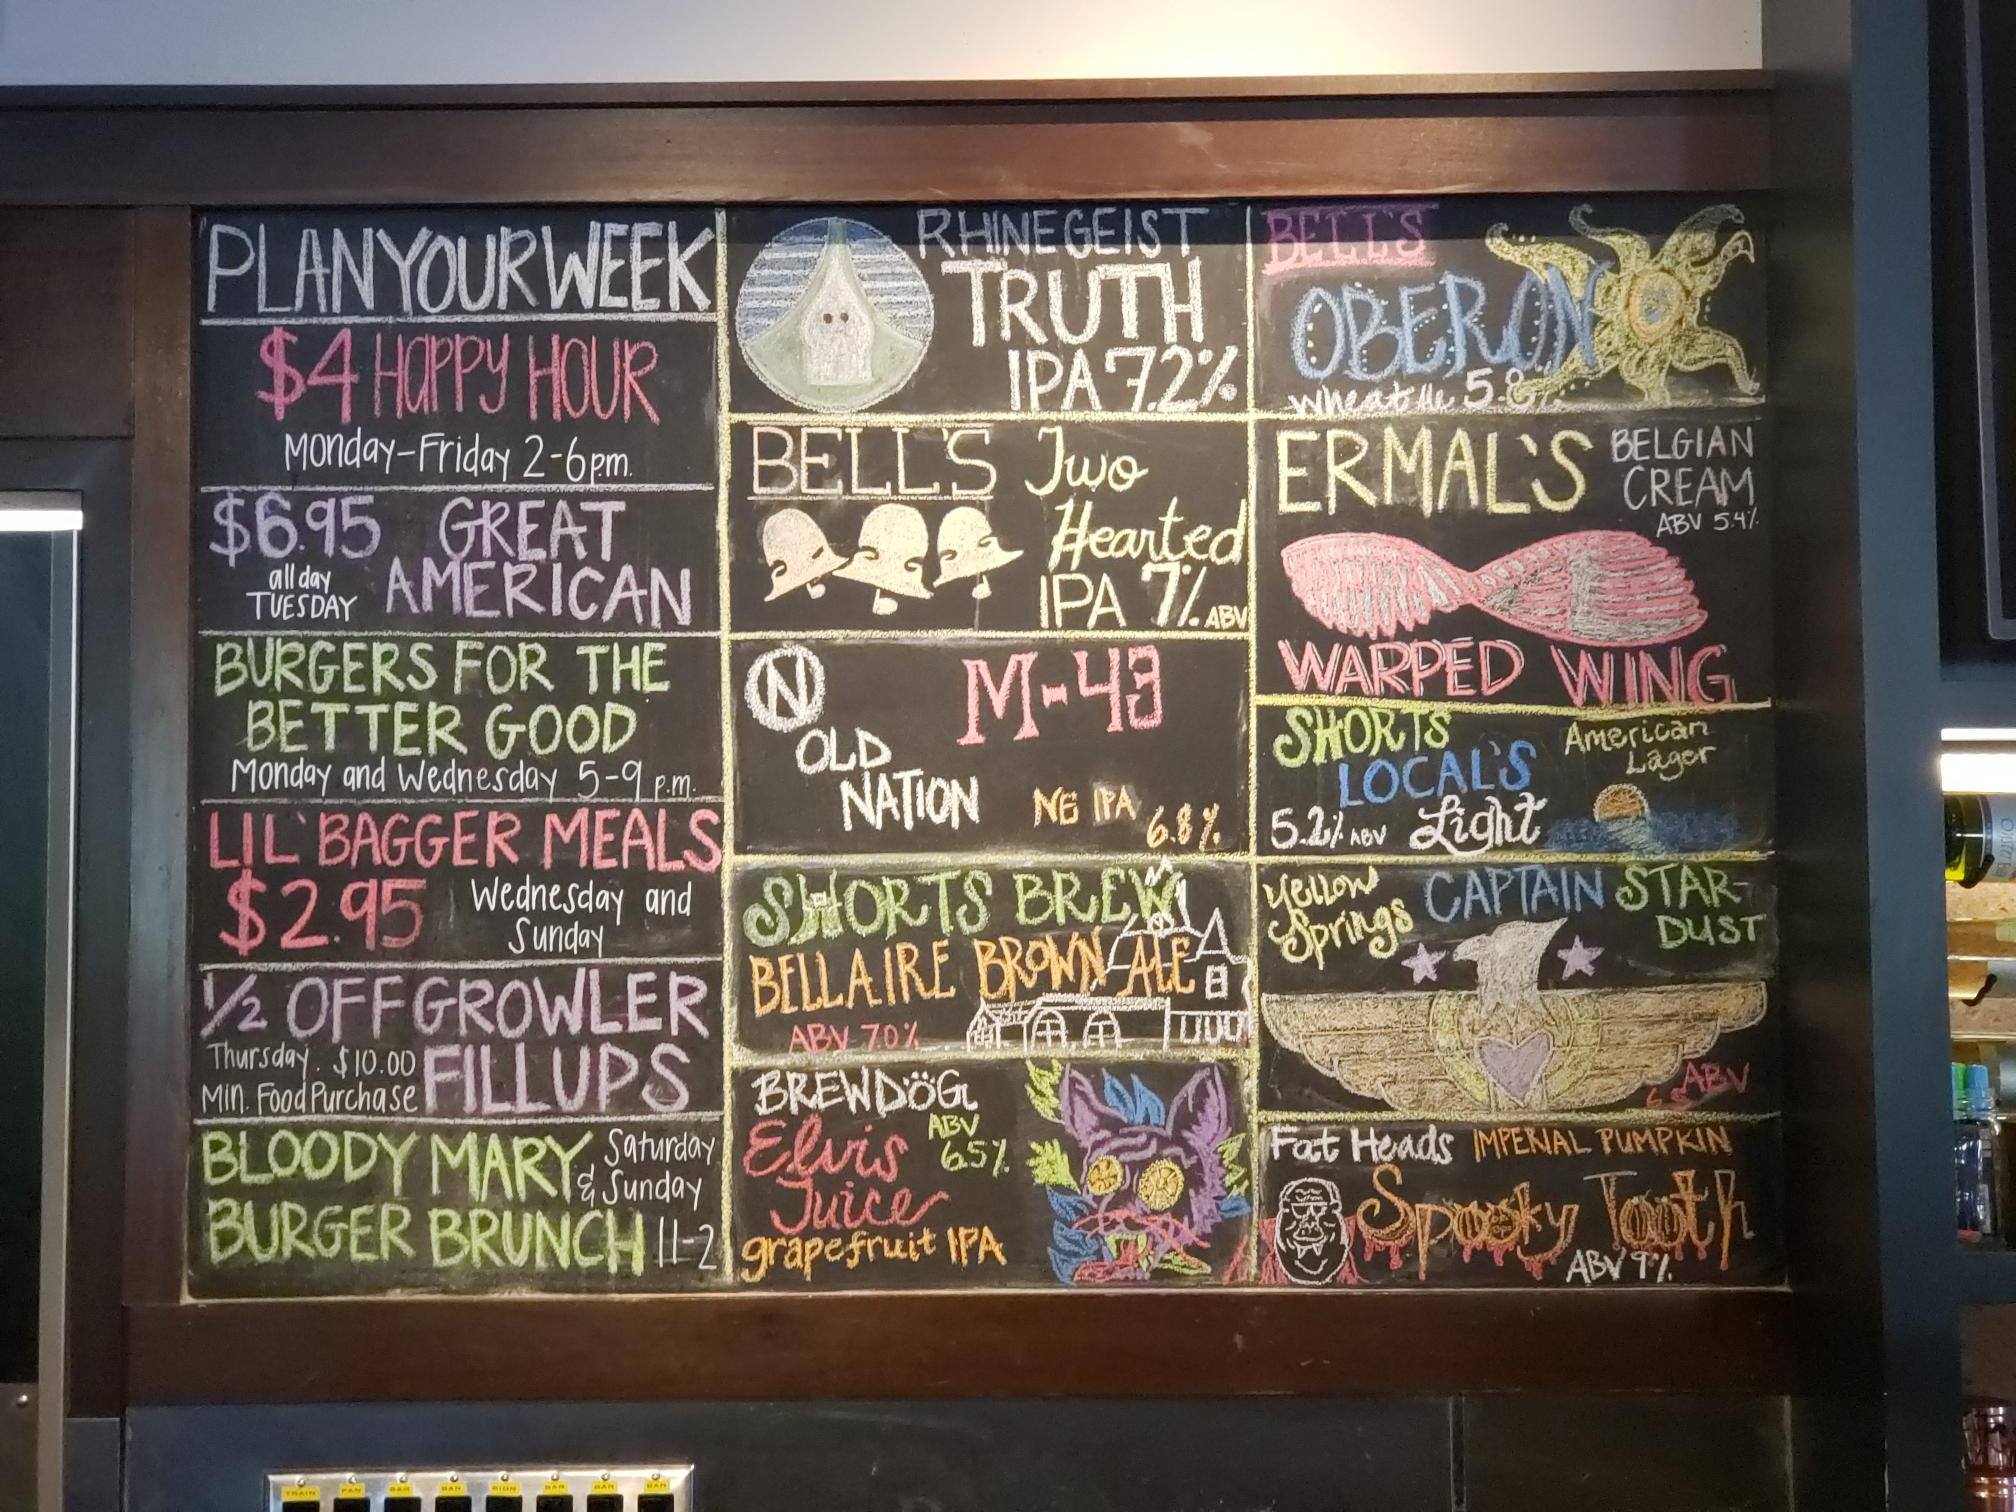 PLAN YOUR WEEK
$4 HAPPY HOUR
Monday-Friday 2-6pm.
$6.95 GREAT
all day
TUESDAY AMERICAN
BURGERS FOR THE
BETTER GOOD
Monday and Wednesday 5-9 p.m.
LIL' BAGGER MEALS
$2.95 Wednesday and
Sunday
1/2 OFF GROWLER
Thursday. $10.00
Min. Food Purchase FILLUPS
BLOODY MARY Saturday
& Sunday
BURGER BRUNCH 11-2
RHINEGEIST
TRUTH
IPA 7.2%
BELL'S Two
Hearted
IPA 7% ABV
N M-43
OLD
NATION
NE IPA 6.8%
SHORTS BREW
BELLAIRE BROWN ALE
ABV 7.0%
BREWDÖG
Elvis ABV
6.5%
Juice
grapefruit IPA
BELL'S
OBERON
Wheat Ale 5.8%
ERMAL'S BELGIAN
CREAM
ABV 5.4%
WARPED WING
SHORTS American
Lager
LOCAL'S
5.2% ABV Light
Yellow
Springs CAPTAIN STAR-
DUST
ABV
Fat Heads IMPERIAL PUMPKIN
Spooky Tooth
ABV 9%
TRAIN FAN BAR BAR SIGN BAR BAR BAR